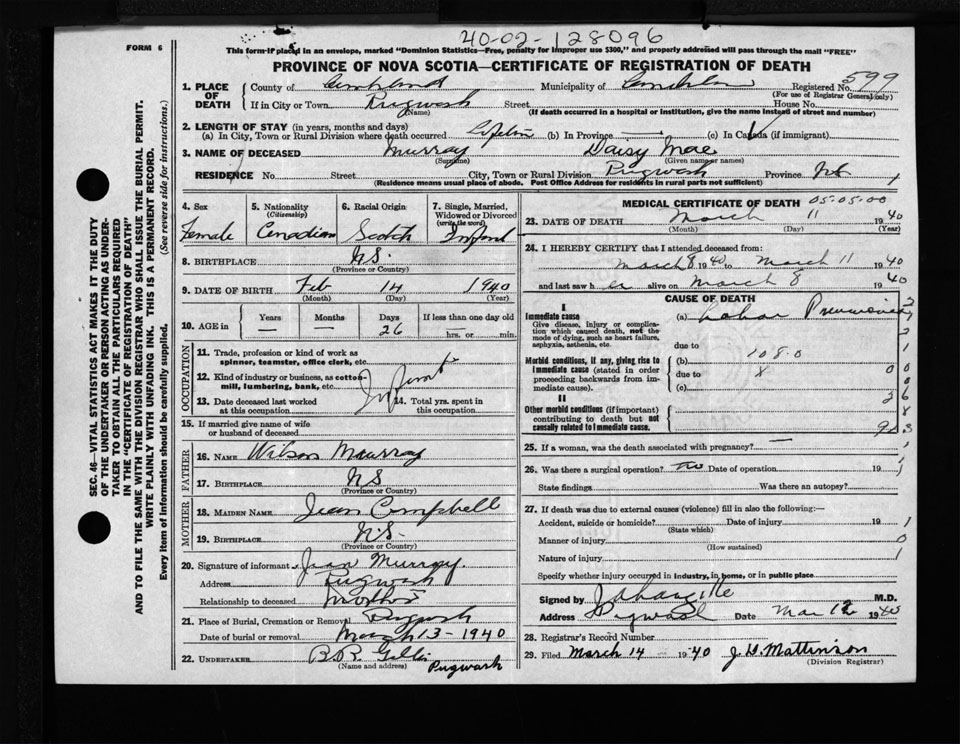 40-02-128096
FORM 6
This form if placed in an envelope, marked "Dominion Statistics—Free, penalty for improper use $300," and properly addressed will pass through the mail "FREE"
PROVINCE OF NOVA SCOTIA—CERTIFICATE OF REGISTRATION OF DEATH
1. PLACE OF DEATH
County of Cumberland Municipality of Cumberland Registered No. 599
(For use of Registrar General only)
If in City or Town Pugwash Street House No.
(Name) (If death occurred in a hospital or institution, give the name instead of street and number)
2. LENGTH OF STAY (in years, months and days)
(a) In City, Town or Rural Division where death occurred Lifetime (b) In Province — (c) In Canada (if immigrant)
3. NAME OF DECEASED Murray Daisy Mae
(Surname) (Given name or names)
RESIDENCE No. Street City, Town or Rural Division Pugwash Province NS 1
(Residence means usual place of abode. Post Office Address for residents in rural parts not sufficient)
4. Sex 5. Nationality 6. Racial Origin 7. Single, Married,
(Citizenship) Widowed or Divorced
(write the word)
Female Canadian Scotch Infant
8. BIRTHPLACE N.S.
(Province or Country)
9. DATE OF BIRTH Feb 14 1940
(Month) (Day) (Year)
10. AGE in Years Months Days If less than one day old
— — 26 hrs. or min.
OCCUPATION
11. Trade, profession or kind of work as
spinner, teamster, office clerk, etc.
12. Kind of industry or business, as cotton-
mill, lumbering, bank, etc. Infant
13. Date deceased last worked 14. Total yrs. spent in
at this occupation this occupation
15. If married give name of wife
or husband of deceased
FATHER
16. NAME Wilson Murray
17. BIRTHPLACE NS
(Province or Country)
MOTHER
18. MAIDEN NAME Jean Campbell
19. BIRTHPLACE N.S.
(Province or Country)
20. Signature of informant Jean Murray.
Address Pugwash
Relationship to deceased Mother
21. Place of Burial, Cremation or Removal Pugwash
Date of burial or removal March 13 - 1940
22. UNDERTAKER B.R. Gillis
(Name and address) Pugwash
MEDICAL CERTIFICATE OF DEATH 05-05-00
23. DATE OF DEATH March 11 1940
(Month) (Day) (Year)
24. I HEREBY CERTIFY that I attended deceased from:
March 8 1940 to March 11 1940
and last saw her alive on March 8 1940
CAUSE OF DEATH
I
Immediate cause (a) Lobar Pneumonia
Give disease, injury or complica-
tion which caused death, not the
mode of dying, such as heart failure,
asphyxia, asthenia, etc. due to
Morbid conditions, if any, giving rise to (b) 108.0
immediate cause (stated in order due to 8
proceeding backwards from im-
mediate cause). (c)
II
Other morbid conditions (if important)
contributing to death but not
causally related to immediate cause.
25. If a woman, was the death associated with pregnancy? —
26. Was there a surgical operation? no Date of operation 19
State findings Was there an autopsy?
27. If death was due to external causes (violence) fill in also the following:—
Accident, suicide or homicide? Date of injury 19
(State which)
Manner of injury
(How sustained)
Nature of injury
Specify whether injury occurred in industry, in home, or in public place
Signed by M.D.
Address Pugwash Date Mar 12 1940
28. Registrar's Record Number
29. Filed March 14 1940 J. H. Mattinson
(Division Registrar)
SEC. 46—VITAL STATISTICS ACT MAKES IT THE DUTY
OF THE UNDERTAKER OR PERSON ACTING AS UNDER-
TAKER TO OBTAIN ALL THE PARTICULARS REQUIRED
IN THE "CERTIFICATE OF REGISTRATION OF DEATH"
AND TO FILE THE SAME WITH THE DIVISION REGISTRAR WHO SHALL ISSUE THE BURIAL PERMIT.
WRITE PLAINLY WITH UNFADING INK. THIS IS A PERMANENT RECORD.
Every item of information should be carefully supplied. (See reverse side for instructions.)